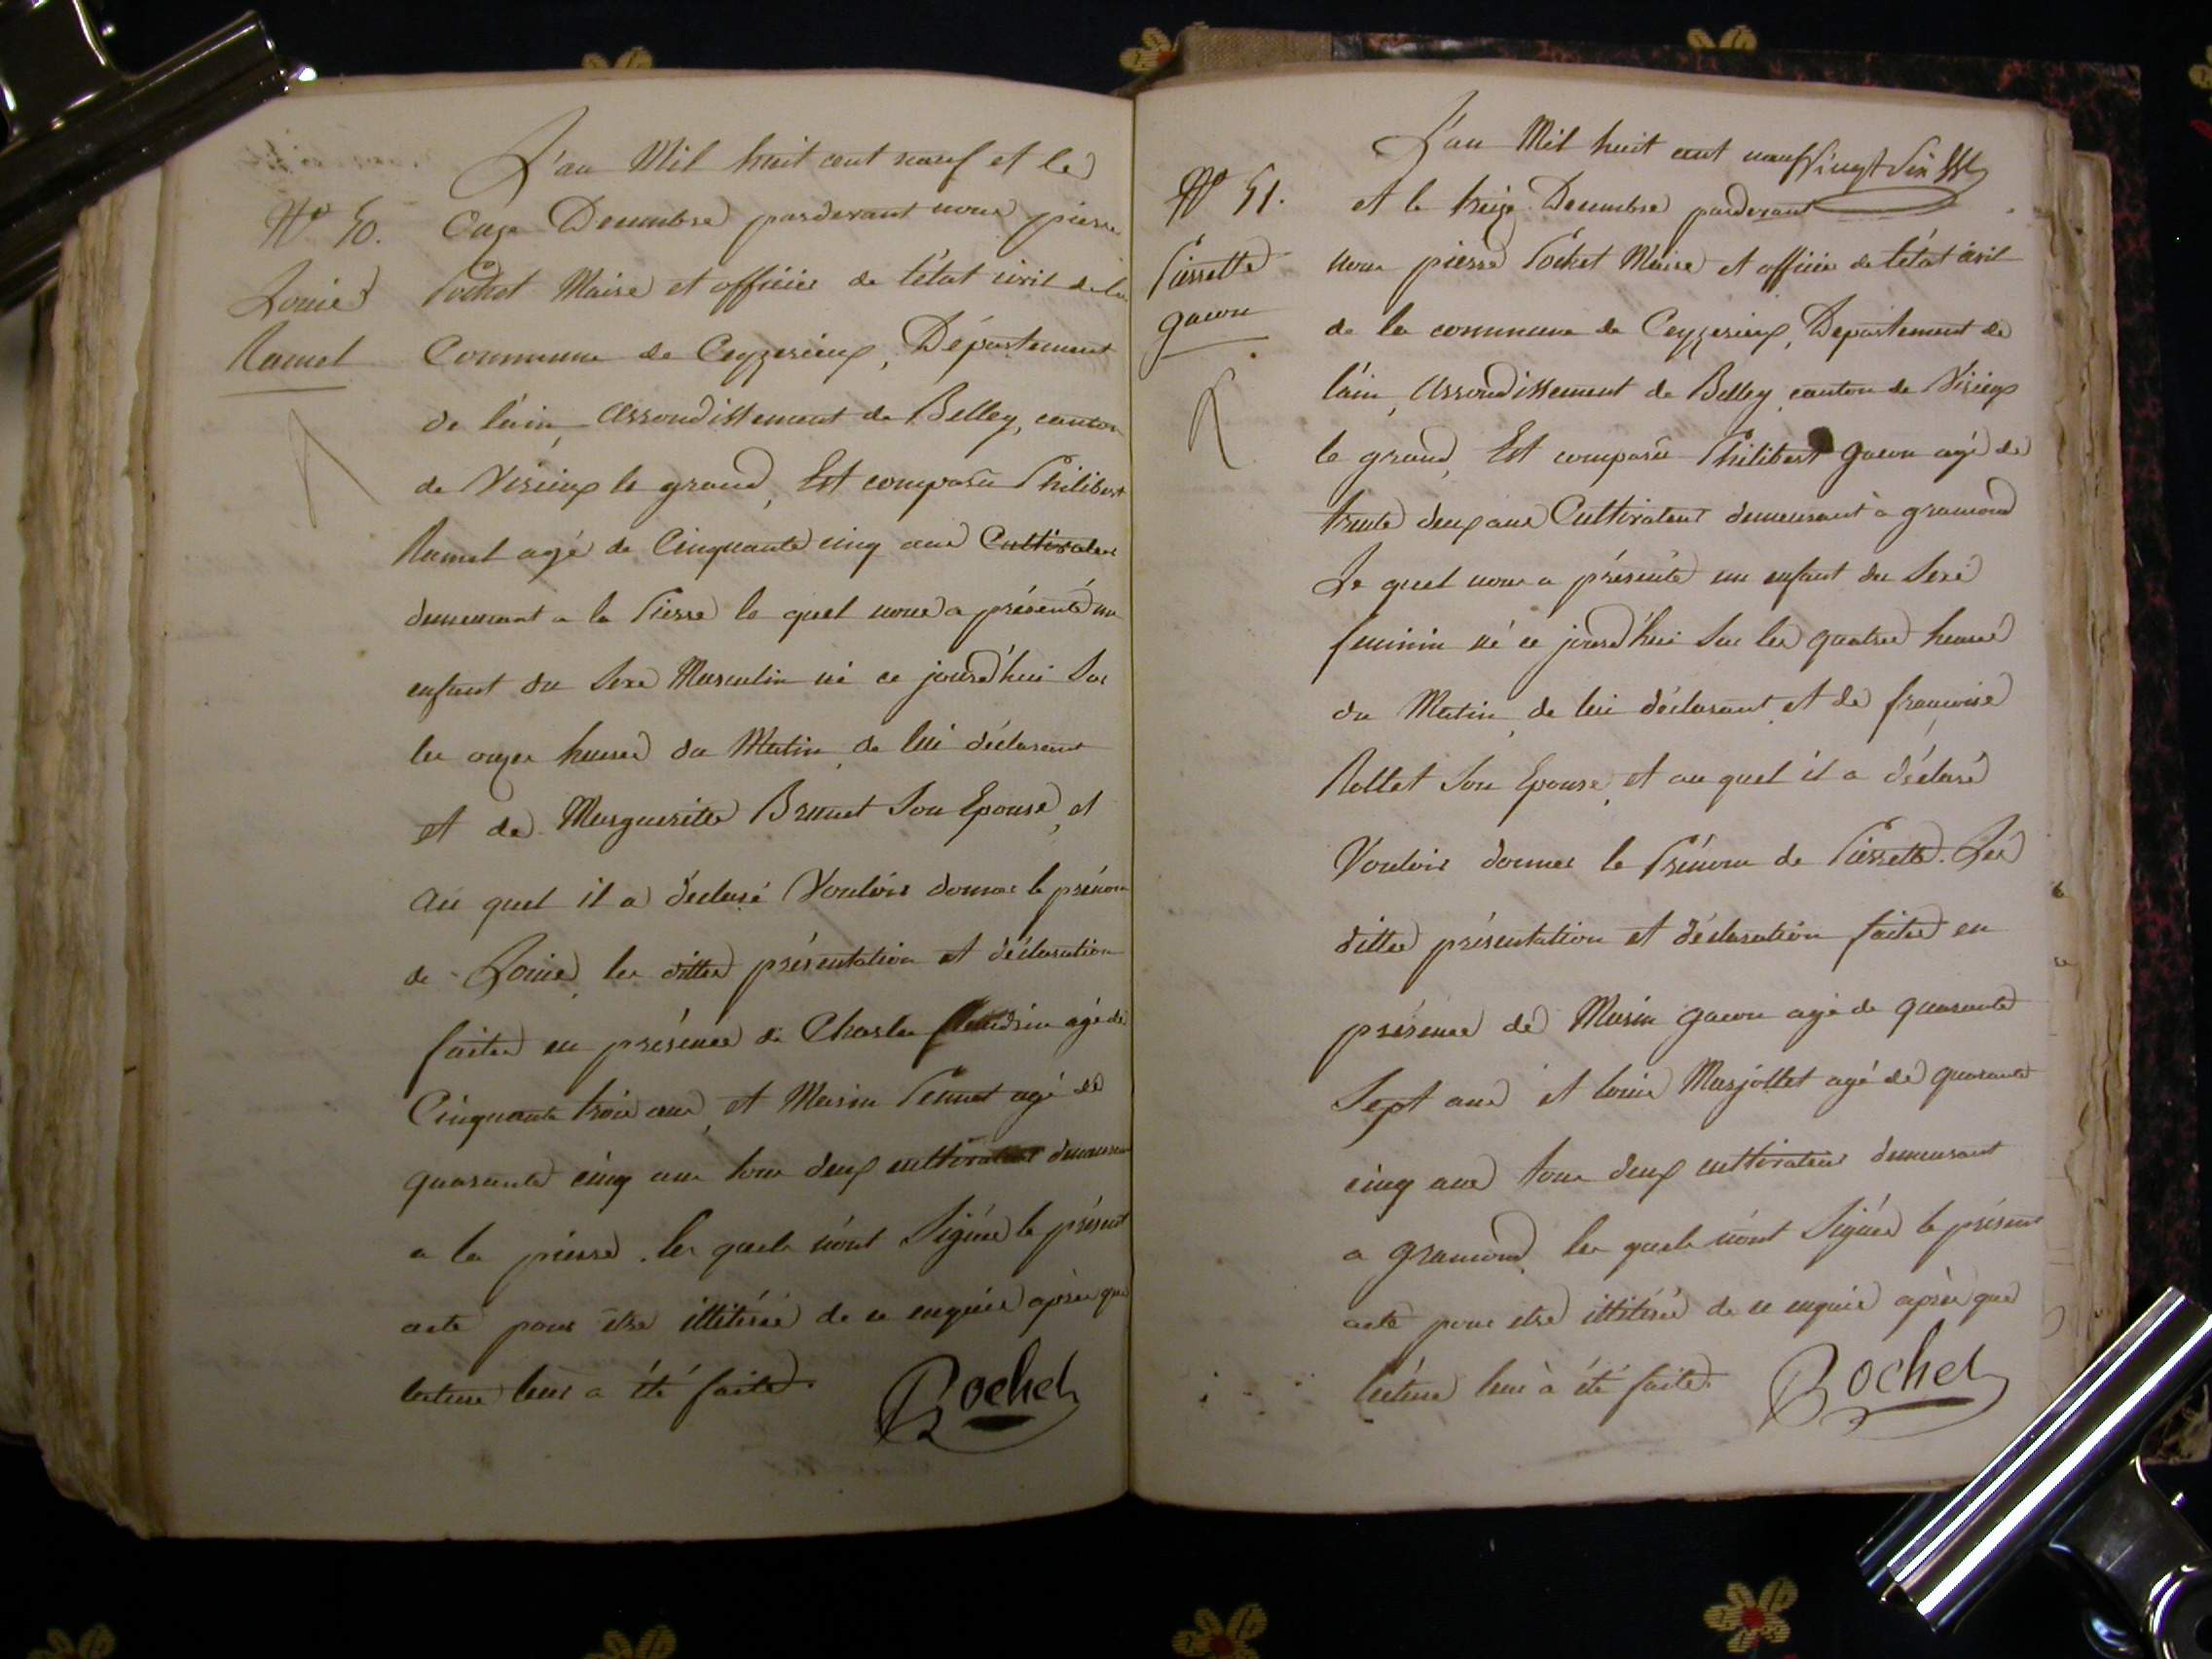 L'an Mil huit cent neuf et le
N° 50. Onze Decembre pardevant nous pierre
Louis Pochet Maire et officier de l'état civil de la
Ramel Commune de Ceyzerieux, Département
de l'ain, Arrondissement de Belley, canton
de Virieux le grand, Est comparu Philibert
Ramel agé de Cinquante cinq ans Cultivateur
demeurant a la Pierre le quel nous a présenté un
enfant du Sexe Masculin né ce jourd'hui Sur
les onze heures du Matin, de lui déclarant
et de Marguerite Brunet Son Epouse, et
Au quel il a déclaré Vouloir donner le prénom
de Louis, les dittes présentation et déclaration
faites en présence de Charles agé de
Cinquante trois ans, et Marin agé de
quarante cinq ans tous deux cultivateurs demeurant
a la pierre. les quels n'ont Signés le présent
acte pour être illitérés de ce enquis après que
lecture leur a été faite.
Rochet
L'an Mil huit cent neuf
N° 51. et le treize Decembre pardevant
Pierrette nous pierre Pochet Maire et officier de l'état civil
gacon de la commune de Ceyzerieux, Departement de
l'ain, Arrondissement de Belley, canton de Virieux
le grand, Est comparu Philibert gacon agé de
trente deux ans Cultivateur demeurant à gramond
Le quel nous a présenté un enfant du Sexe
feminin né ce jourd'hui Sur les quatre heures
du Matin, de lui déclarant, et de françoise
Rollet Son Epouse, et au quel il a déclaré
Vouloir donner le Prénom de Pierrette. Les
dittes présentation et déclaration faites en
présence de Marin gacon agé de quarante
Sept ans et louis Marjollet agé de quarante
cinq ans tous deux cultivateurs demeurant
a gramond, les quels n'ont Signés le présent
acte pour etre illitérés de ce enquis après que
lecture leur à été faite.
Rochet